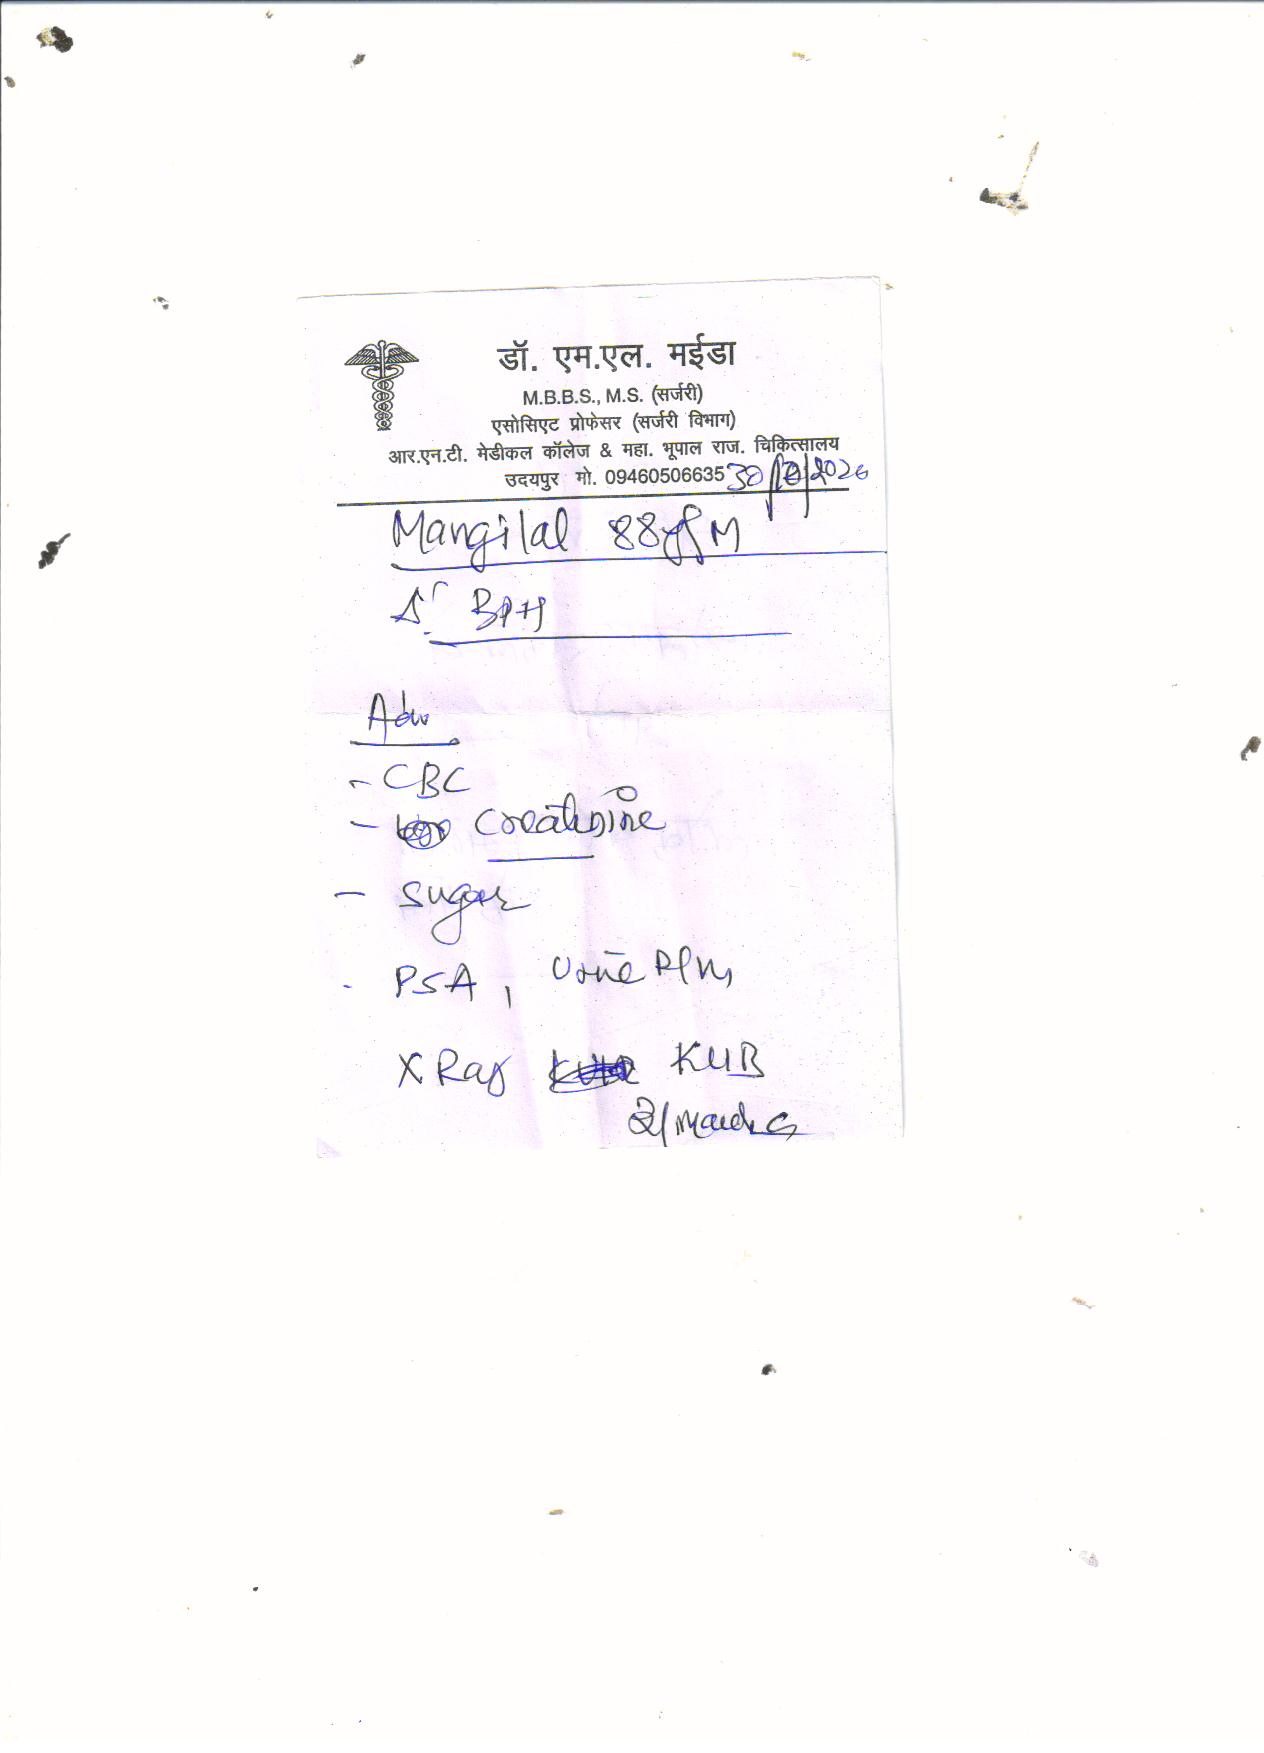 डॉ. एम.एल. मईडा
M.B.B.S., M.S. (सर्जरी)
एसोसिएट प्रोफेसर (सर्जरी विभाग)
आर.एन.टी. मेडीकल कॉलेज & महा. भूपाल राज. चिकित्सालय
उदयपुर मो. 09460506635
Mangilal 88 M
BPH
Adv
- CBC
- Creatinine
- Sugar
- PSA, Urine
X Ray KUB